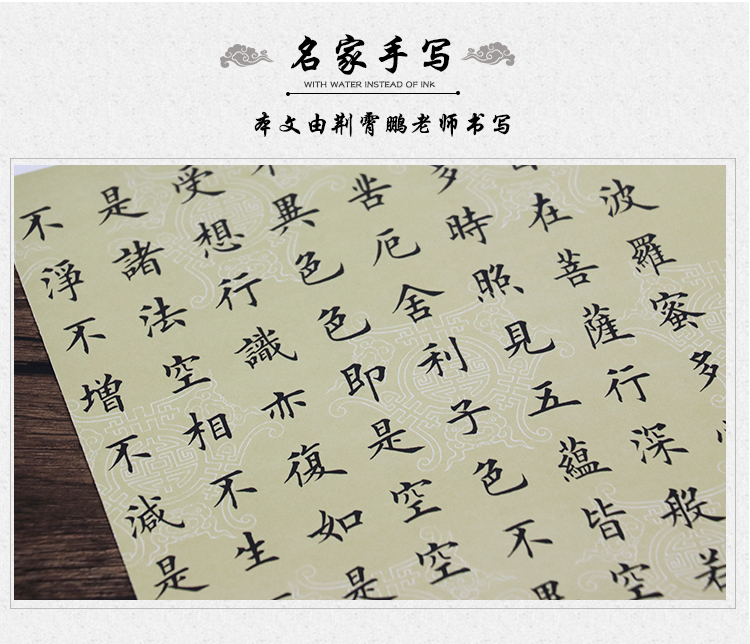 名家手写
WITH WATER INSTEAD OF INK
本文由荆霄鹏老师书写
波羅蜜多
在菩薩行深般若
多時照見五蘊皆空
苦厄舍利子色不異
異色色即是空空
受想行識亦復如是
是諸法空相不生
不淨不增不減是